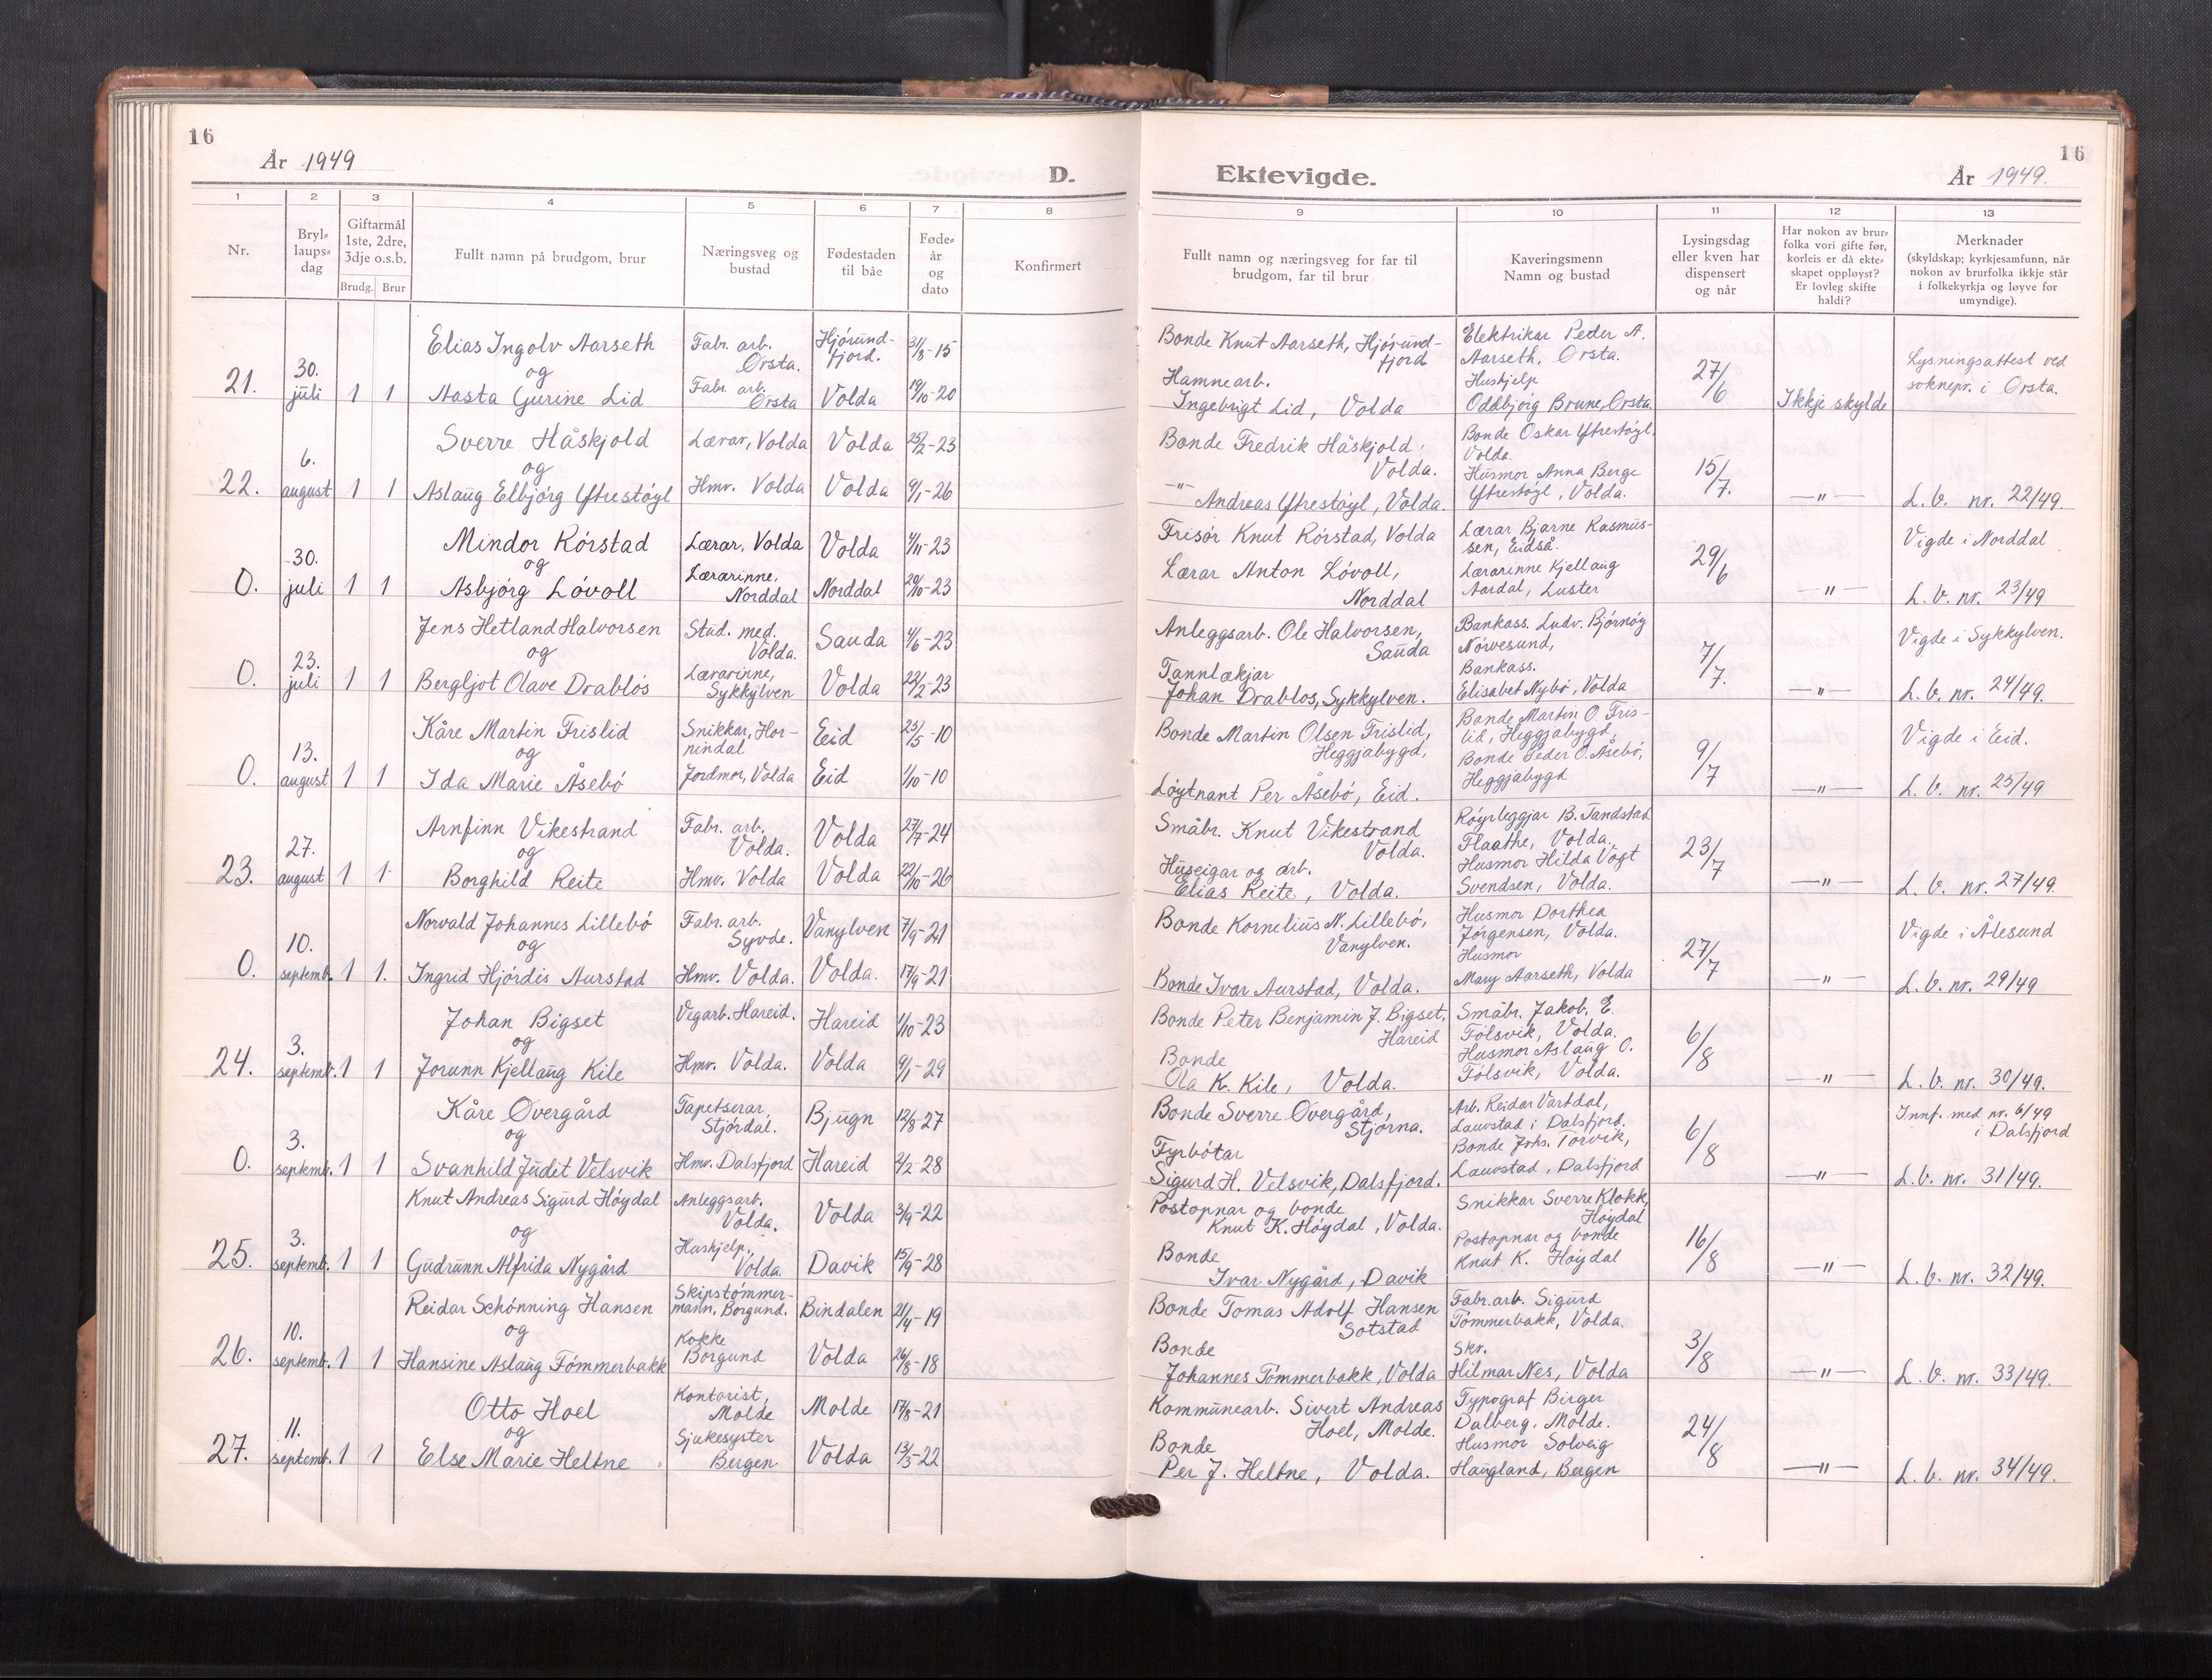 16
År 1949
D.
Ektevigde.
År 1949.
16
1
2
3
4
5
6
7
8
9
10
11
12
13
Nr.
Bryl-
laups-
dag
Giftarmål
1ste, 2dre,
3dje o.s.b.
Brudg. Brur
Fullt namn på brudgom, brur
Næringsveg og
bustad
Fødestaden
til båe
Føde-
år
og
dato
Konfirmert
Fullt namn og næringsveg for far til
brudgom, far til brur
Kaveringsmenn
Namn og bustad
Lysingsdag
eller kven har
dispensert
og når
Har nokon av brur-
folka vori gifte før,
korleis er då ekte-
skapet oppløyst?
Er lovleg skifte
haldi?
Merknader
(skyldskap; kyrkjesamfunn, når
nokon av brurfolka ikkje står
i folkekyrkja og løyve for
umyndige).
21.
30.
juli
1 1
Elias Ingolv Aarseth
og
Aasta Gurine Lid
Fabr. arb.
Ørsta.
Fabr. arb.
Ørsta
Hjørund-
fjord.
Volda
31/8-15
19/10-20
Bonde Knut Aarseth, Hjørund-
fjord
Hamnearb.
Ingebrigt Lid, Volda
Elektrikar Peder A.
Aarseth, Ørsta.
Hushjelp
Oddbjørg Brune, Ørsta.
27/6
Ikkje skylde
Lysningsattest ved
soknepr. i Ørsta.
22.
6.
august
1 1
Sverre Håskjold
og
Aslaug Elbjørg Ytrestøyl
Lærar, Volda
Hmv. Volda
Volda
Volda
25/2-23
9/1-26
Bonde Fredrik Håskjold
Volda.
—"—
Andreas Ytrestøyl, Volda.
Bonde Oskar Ytrestøyl.
Volda.
Husmor Anna Berge
Ytrestøyl, Volda.
15/7.
—"—
L.b. nr. 22/49.
0.
30.
juli
1 1
Mindor Rørstad
og
Asbjørg Løvoll
Lærar, Volda
Lærarinne,
Norddal
Volda
Norddal
4/11-23
20/10-23
Frisør Knut Rørstad, Volda
Lærar Anton Løvoll,
Norddal
Lærar Bjarne Rasmus-
sen, Eidså.
Lærarinne Kjellaug
Aardal, Luster
29/6
—"—
Vigde i Norddal
L.b. nr. 23/49
0.
23.
juli
1 1
Jens Hetland Halvorsen
og
Bergljot Olave Drabløs
Stud. med.
Volda.
Lærarinne,
Sykkylven
Sauda
Volda
4/6-23
22/2-23
Anleggsarb. Ole Halvorsen,
Sauda
Tannlækjar
Johan Drabløs, Sykkylven.
Bankass. Ludv. Bjørnøy
Nørvesund,
Bankass.
Elisabet Nybø, Volda
7/7.
—"—
Vigde i Sykkylven.
L.b. nr. 24/49.
0.
13.
august
1 1
Kåre Martin Frislid
og
Ida Marie Åsebø
Snikkar, Hor-
nindal
Jordmor, Volda
Eid
Eid
25/5-10
1/10-10
Bonde Martin Olsen Frislid,
Heggjabygd,
Løytnant Per Åsebø, Eid.
Bonde Martin O. Fris-
lid, Heggjabygd,
Bonde Peder O. Åsebø,
Heggjabygd
9/7
—"—
Vigde i Eid.
L.b. nr. 25/49
23.
27.
august
1 1
Arnfinn Vikestrand
og
Borghild Reite
Fabr. arb.
Volda.
Hmv. Volda
Volda
Volda
27/7-24
22/10-26
Småbr. Knut Vikestrand
Volda.
Huseigar og arb.
Elias Reite, Volda.
Røyrleggjar B. Tandstad
Flaathe, Volda.
Husmor Hilda Vogt
Svendsen, Volda.
23/7
—"—
L.b. nr. 27/49.
0.
10.
septemb.
1 1.
Norvald Johannes Lillebø
og
Ingrid Hjørdis Aurstad
Fabr. arb.
Syvde.
Hmv. Volda.
Vanylven
Volda.
7/9-21
17/9-21
Bonde Kornelius N. Lillebø,
Vanylven.
Bonde Ivar Aurstad, Volda.
Husmor Dorthea
Jørgensen, Volda.
Husmor
Mary Aarseth, Volda
27/7
—"—
Vigde i Ålesund
L.b. nr. 29/49
24.
3.
septemb.
1 1
Johan Bigset
og
Jorunn Kjellaug Kile
Vegarb. Hareid.
Hmv. Volda.
Hareid
Volda
1/10-23
9/1-29
Bonde Peter Benjamin J. Bigset,
Hareid
Bonde
Ola K. Kile, Volda.
Småbr. Jakob. E.
Følsvik, Volda.
Husmor Aslaug O.
Følsvik, Volda.
6/8
—"—
L.b. nr. 30/49.
0.
3.
septemb.
1 1
Kåre Øvergård
og
Svanhild Judit Velsvik
Tapetserar,
Stjørdal.
Hmv. Dalsfjord
Bjugn
Hareid
12/8-27
2/2-28
Bonde Sverre Øvergård,
Stjørna.
Fyrbøtar
Sigurd H. Velsvik, Dalsfjord.
Arb. Reidar Vartdal,
Lauvstad i Dalsfjord.
Bonde Johs. Torvik,
Lauvstad, Dalsfjord
6/8
—"—
Innf. med nr. 6/49
i Dalsfjord
L.b. nr. 31/49.
25.
3.
septemb.
1 1
Knut Andreas Sigurd Høydal
og
Gudrunn Alfrida Nygård
Anleggsarb.
Volda.
Hushjelp.,
Volda.
Volda
Davik
3/9-22
15/9-28
Postopnar og bonde
Knut K. Høydal, Volda.
Bonde
Ivar Nygård, Davik
Snikkar Sverre Klokk,
Høydal
Postopnar og bonde
Knut K. Høydal
16/8
—"—
L.b. nr. 32/49.
26.
10.
septemb.
1 1
Reidar Schønning Hansen
og
Hansine Aslaug Tømmerbakk
Skipstømmer-
mann, Borgund.
Kokke
Borgund
Bindalen
Volda
21/4-19
26/8-18
Bonde Tomas Adolf Hansen
Sotstad
Bonde
Johannes Tømmerbakk, Volda
Fabr.arb. Sigurd
Tømmerbakk, Volda.
Skr.
Hilmar Nes, Volda
3/8
—"—
L.b. nr. 33/49.
27.
11.
septemb.
1 1
Otto Hoel
og
Else Marie Heltne
Kontorist,
Molde
Sjukesyster
Bergen
Molde
Volda
17/8-21
13/3-22
Kommunearb. Sivert Andreas
Hoel, Molde.
Bonde
Per J. Heltne, Volda.
Typograf Birger
Dalberg, Molde.
Husmor Solveig
Haugland, Bergen
24/8
—"—
L.b. nr. 34/49.